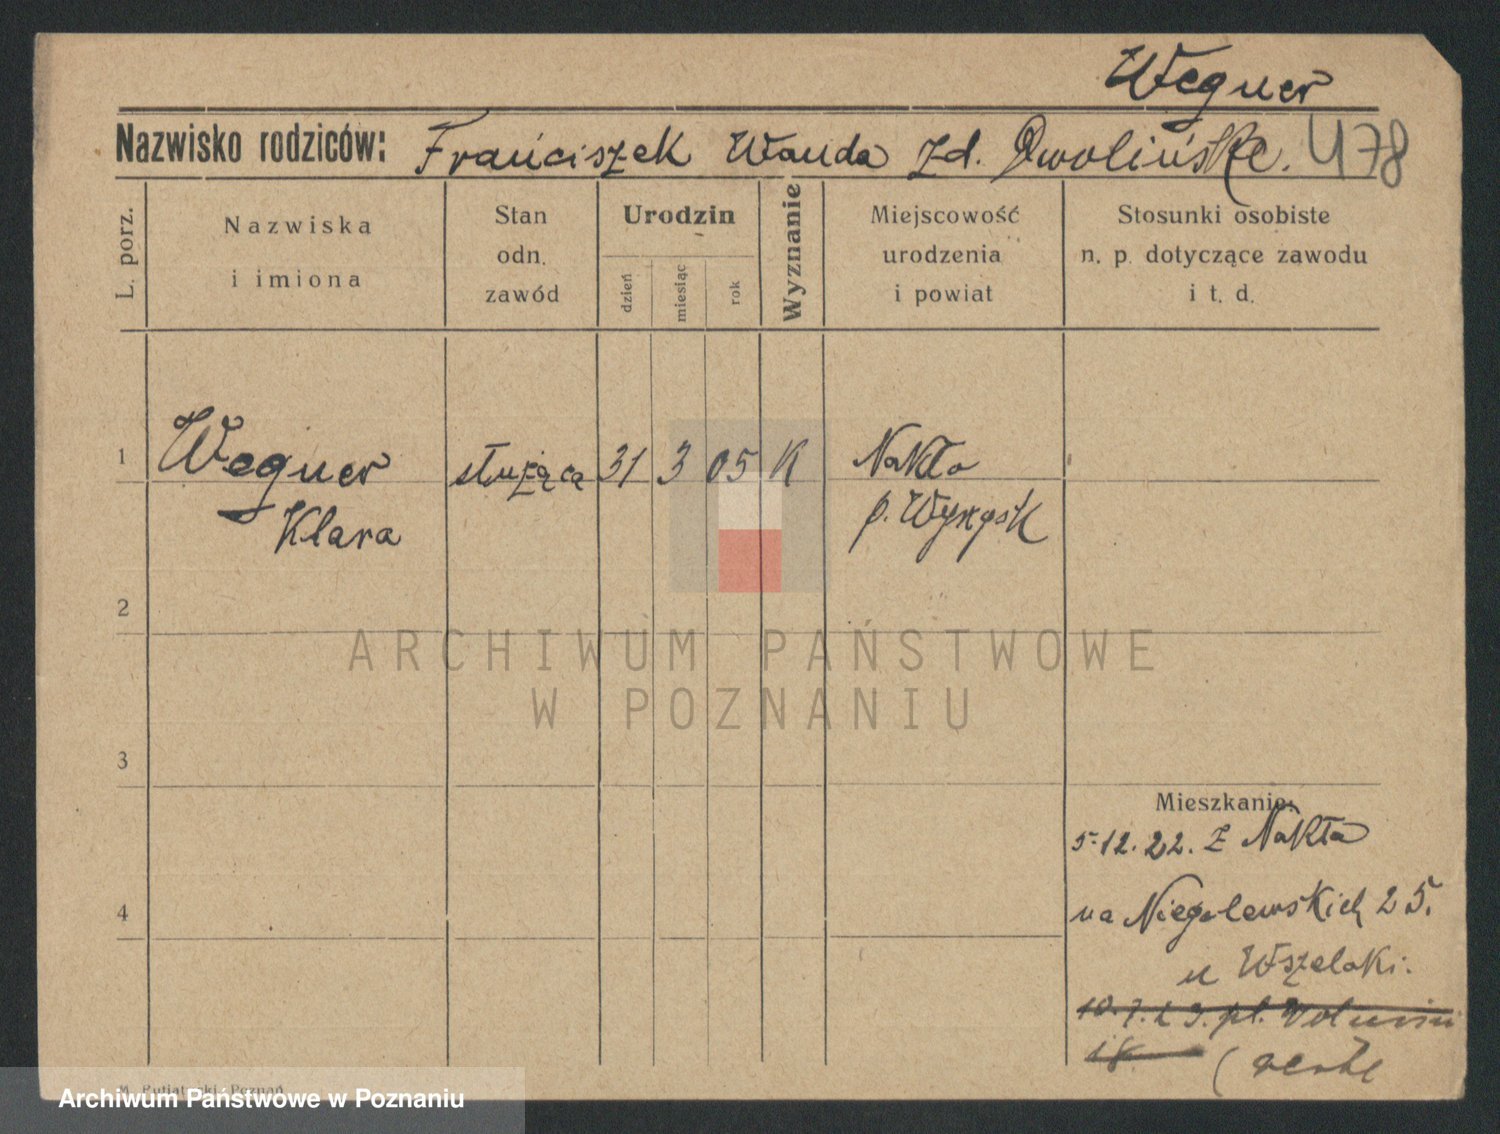 Wegner
Nazwisko rodziców: Franciszek Wanda zd. Owolińske. 478
L. porz.
Nazwiska
i imiona
Stan
odn.
zawód
Urodzin
dzień
miesiąc
rok
Wyznanie
Miejscowość
urodzenia
i powiat
Stosunki osobiste
n. p. dotyczące zawodu
i t. d.
1 Wegner służąca 31 3 05 K Nakło
Klara p. Wyrzysk
2
ARCHIWUM PAŃSTWOWE
W POZNANIU
3
Mieszkanie:
5.12.22. z Nakła
4
na Niegolewskich 25.
u Wszelaki.
10.7.23. pl.
18.
M. Putiatycki, Poznań
Archiwum Państwowe w Poznaniu